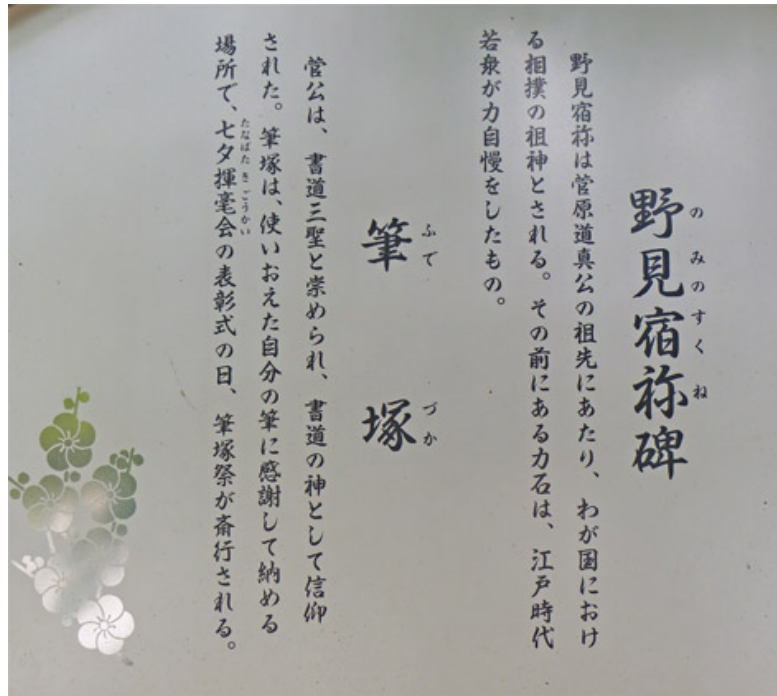 野見宿祢碑
のみのすくね
野見宿祢は菅原道真公の祖先にあたり、わが国におけ
る相撲の祖神とされる。その前にある力石は、江戸時代
若衆が力自慢をしたもの。
筆塚
ふでづか
菅公は、書道三聖と崇められ、書道の神として信仰
された。筆塚は、使いおえた自分の筆に感謝して納める
場所で、七夕揮毫会の表彰式の日、筆塚祭が斎行される。
たなばたきごうかい